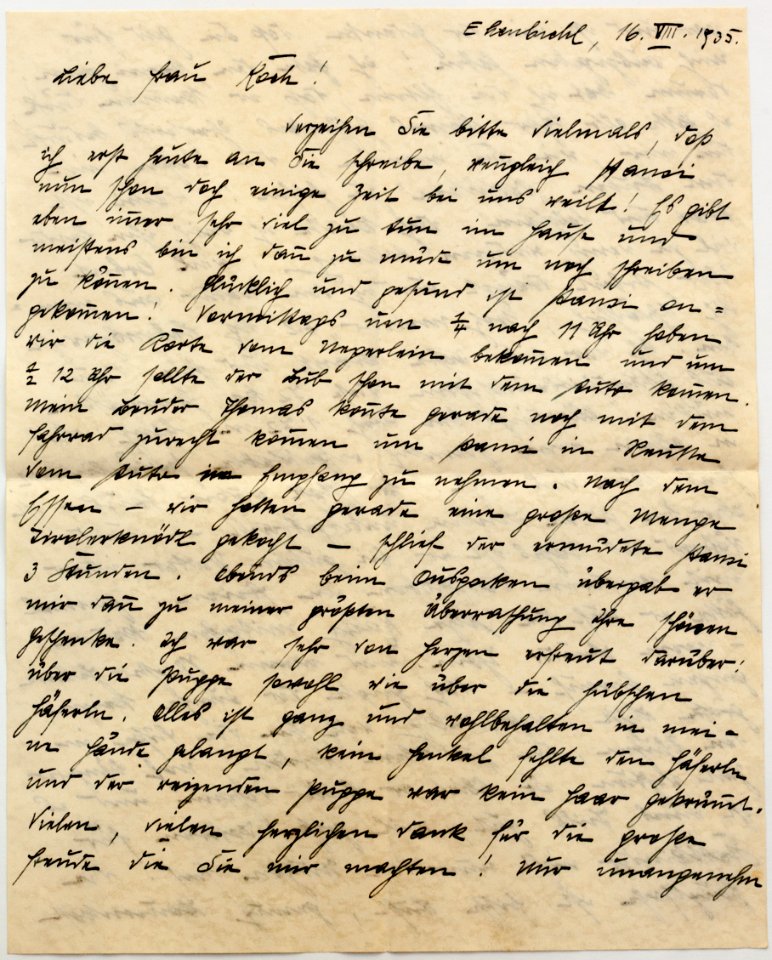 Ehenbichl, 16. VIII. 1935.
Liebe Frau Koch!
Verzeihen Sie bitte vielmals, daß
ich erst heute an Sie schreibe, wengleich Hansi
nun schon doch einige Zeit bei uns weilt! Es gibt
eben im̄er sehr viel zu tun im Hause und
meistens bin ich dan̄ zu müde um noch schreiben
zu kön̄en. Glücklich und gesund ist Hansi an=
gekom̄en! Vormittags um ¼ nach 11 Uhr haben
wir die Karte vom bekom̄en und um
½ 12 Uhr sollte der Bub schon mit dem Auto kom̄en.
Mein Bruder Thomas kon̄te gerade noch mit dem
Fahrrad zurecht kom̄en um Hansi in Reutte
vom Auto in Empfang zu nehmen. Nach dem
Essen – wir hatten gerade eine große Menge
Tirolerknödl gekocht – schlief der ermüdete Hansi
3 Stunden. Abends beim Auspacken übergab er
mir dan̄ zu meiner größten Überraschung Ihre schönen
Geschenke. Ich war sehr von Herzen erfreut darüber:
über die Puppe sowohl wie über die hübschen
Häferln. Alles ist ganz und wohlbehalten in mei-
ne Hände gelangt, kein Henkel fehlte den Häferln
und der reizenden Puppe war kein Haar gekrüm̄t.
Vielen, vielen herzlichen Dank für die große
Freude die Sie mir machten! Nur unangenehm